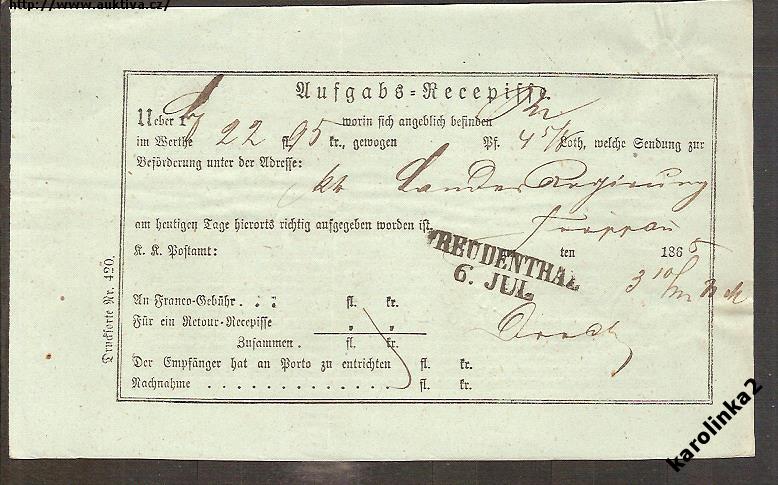 http://www.auktiva.cz/
Aufgabs-Recepisse
Ueber worin sich angeblich befinden
im Werthe 22 fl. 95 kr., gewogen Pf. 4 Loth, welche Sendung zur
Beförderung unter der Adresse:
kk Landes Regierung
am heutigen Tage hierorts richtig aufgegeben worden ist. Troppau
K. K. Postamt: FREUDENTHAL ten 1865
6. JUL.
An Franco-Gebühr . . : fl. kr.
Für ein Retour-Recepisse " "
Zusammen . fl. kr.
Der Empfänger hat an Porto zu entrichten fl. kr.
Nachnahme . . . . . . . . . . . . . fl. kr.
Drucksorte Nr. 420.
karolinka2